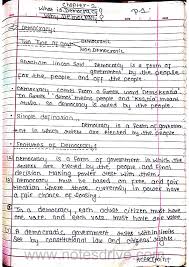 Chapter-2
What is Democracy?
Why Democracy?
P-1
Democracy:
Two Type of Govt
Democratic
Non Democratic
Abraham Lincon Said Democracy is a form of
government by the people
for the people, and off the people.
Democracy comes from a Greek word Demokratia.
In Greek Demos means people and Kratia means
rule. So democracy is ruled by the people.
Simple definition
Democracy is a form of government
in which rulers are elected by the people
Features of Democracy:
Democracy is a form of government in which the
rulers are elected by the people and final
decision making power rest with them.
Democracy must be based on free and fair
election where those currently in power have
a fair chance of losing.
In a democracy, each adult citizen must have
one vote. And each vote must have one value.
A democratic government rules within limits
set by constitutional law and citizens rights.